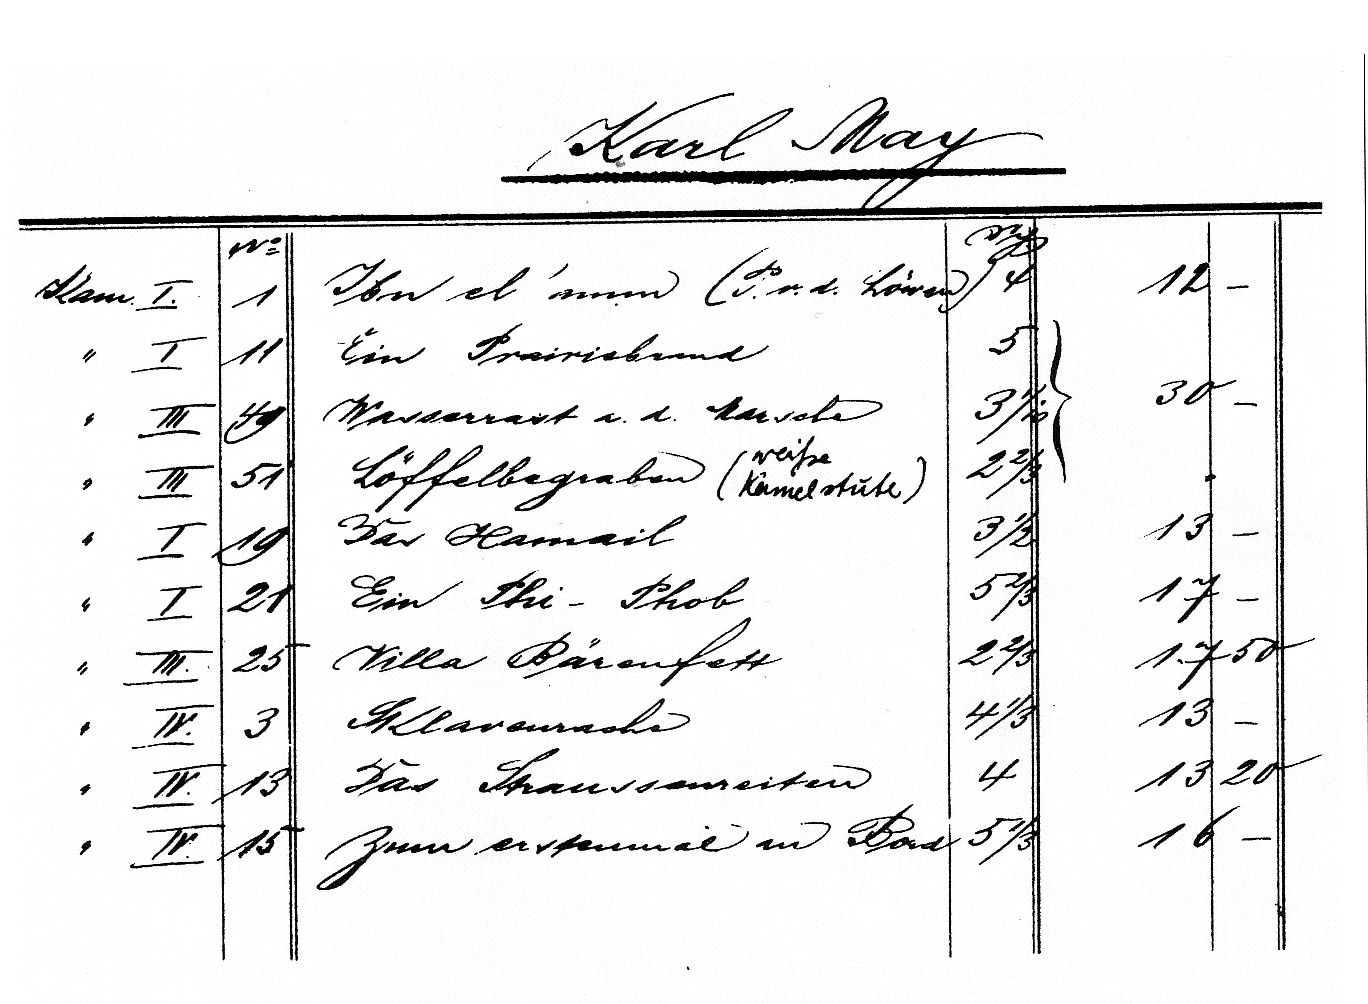 Karl May
No
Kam. I. 1 Ibn el 'amm (P. v. d. Löwen) 4 12 –
" I 11 Ein Prairiebrand 5
" III 49 Wasserrast a. d. Marsche 3 1/10 30 –
" III 51 Löffelbegraben (weiße Kamelstute) 2 2/3
" I 19 Das Hamail 3 1/2 13 –
" I 21 Ein Phi-Phob 5 2/3 17 –
" III. 25 Villa Bärenfett 2 2/3 17 50
" IV. 3 Sklavenrache 4 1/3 13 –
" IV. 13 Das Straussenreiten 4 13 20
" IV. 15 Zum erstenmal an Bord 5 1/3 16 –